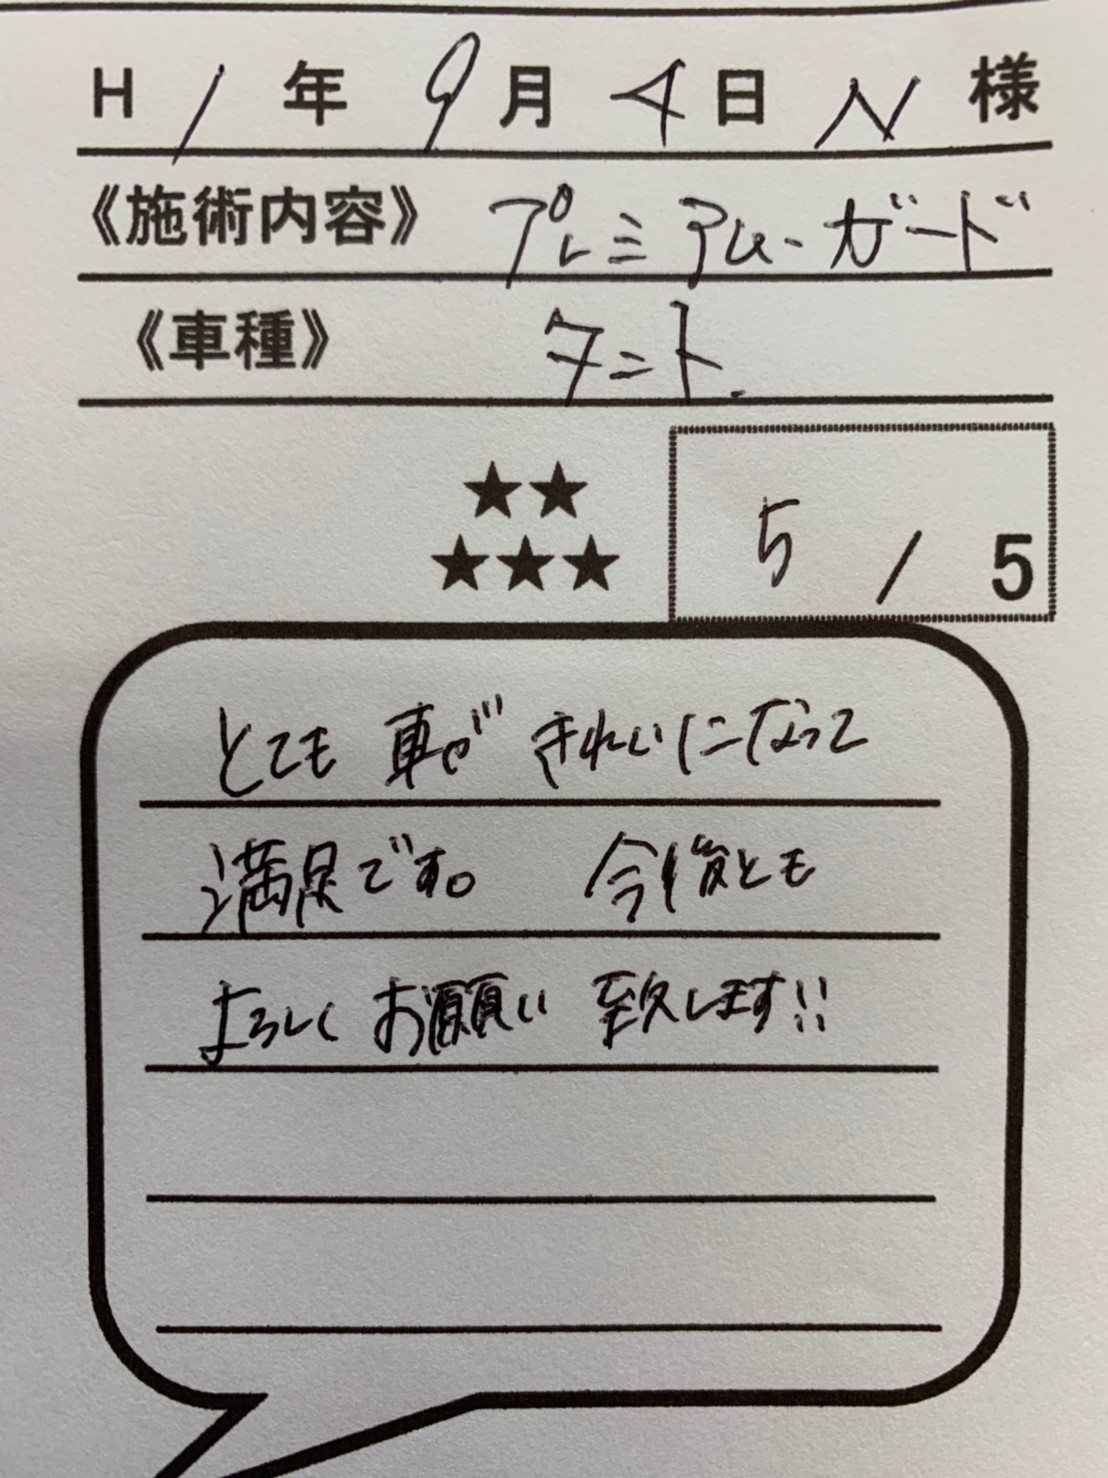 H 1 年 9 月 4 日 N 様
《施術内容》 プレミアム・ガード
《車種》 タント.
★★
★★★ 5 / 5
とても 車が きれいになって
満足です。 今後とも
よろしく お願い 致します!!